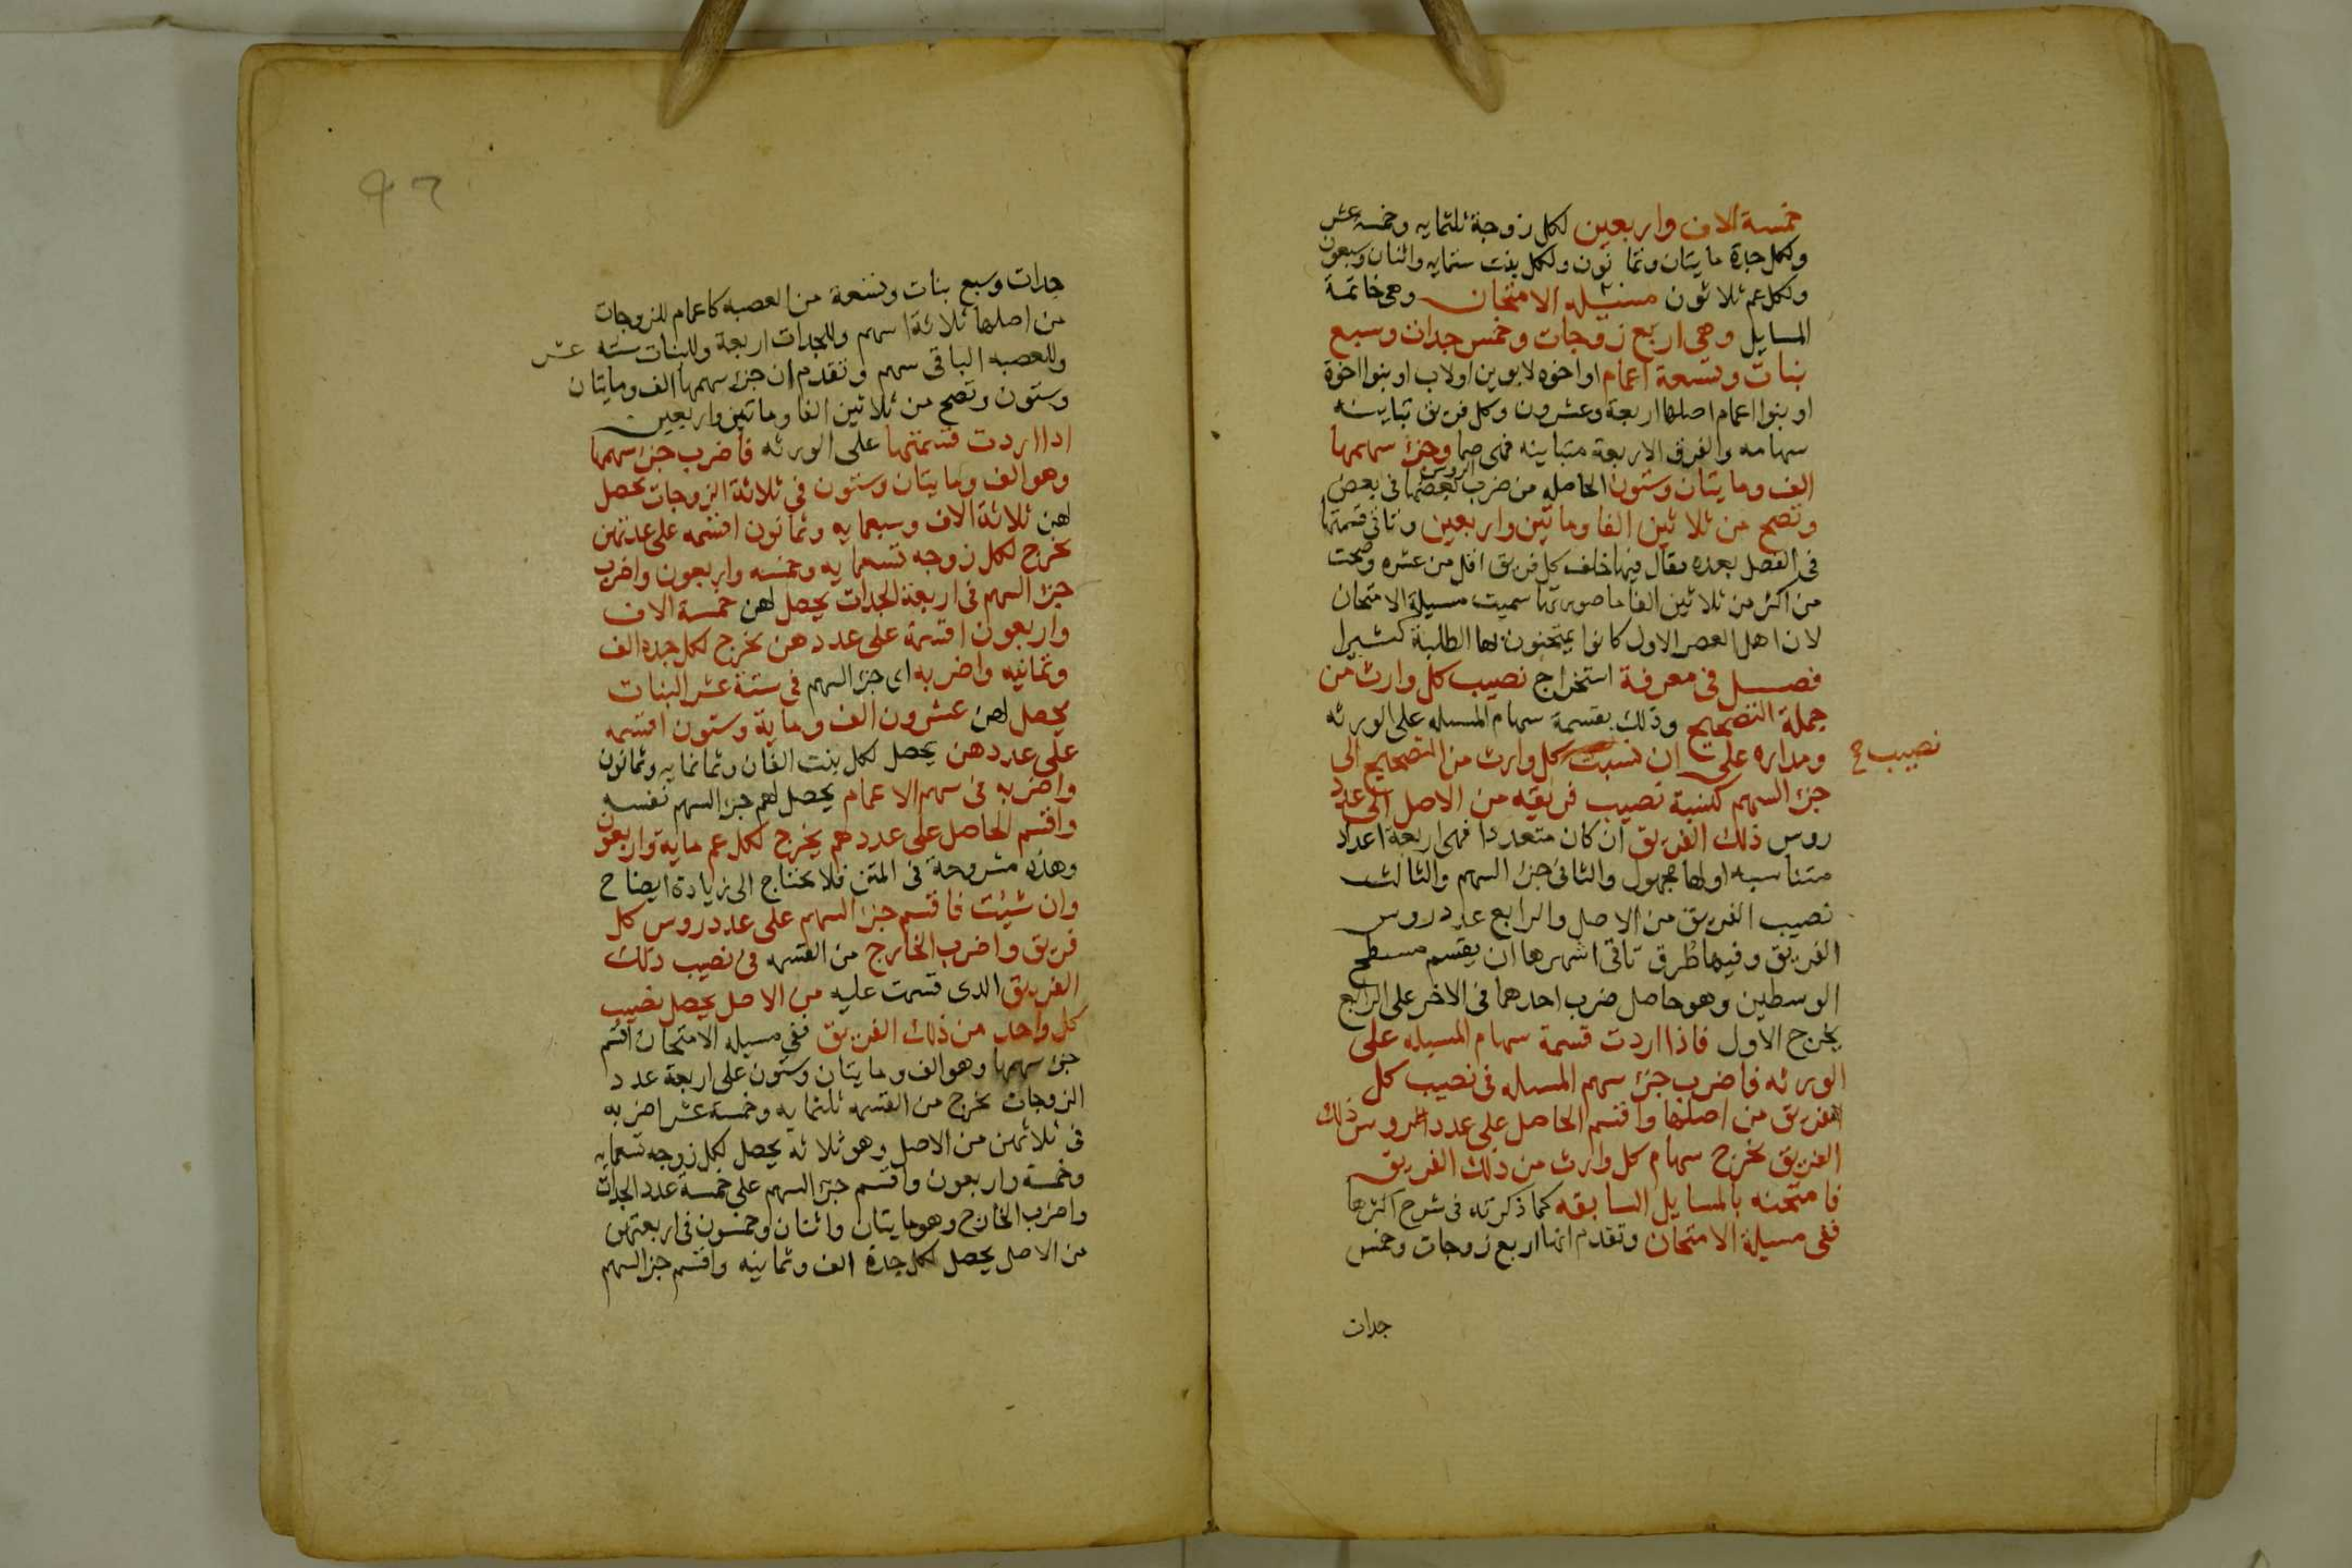 خمسة الاف واربعين لكل زوجة ثلثمايه وخمسة عشر
ولكل جدة مايتان وثمانون ولكل بنت ستمايه واثنان وسبعون
ولكل عم ثلاثون مسيله الامتحان وهي خاتمة
المسايل وهي اربع زوجات وخمس جدات وسبع
بنات وتسعة اعمام او اخوه لابوين اولاب او بنوا اخوة
او بنوا اعمام اصلها اربعة وعشرون وكل فريق تباينه
سهامه والفرق الاربعة متباينه فهي صما وجزء سهمها
الف ومايتان وستون الحاصله من ضرب الروس بعضها في بعض
وتصح من ثلاثين الفا ومايتين واربعين وتاتي قسمتها
في الفصل بعده يقال فيها خلف كل فريق اقل من عشره وصحت
من اكثر من ثلاثين الفا ما صورتها سميت مسيلة الامتحان
لان اهل العصر الاول كانوا يمتحنون بها الطلبة كثيرا
فصل في معرفة استخراج نصيب كل وارث من
جملة التصحيح وذلك بقسمة سهام المسله على الورثه
ومداره على ان نسبت كل وارث من التصحيح الى
نصيب صح
جزء السهم كنسبة نصيب فريقه من الاصل الى عدد
روس ذلك الفريق ان كان متعددا فهي اربعة اعداد
متناسبه اولها مجهول والثاني جزء السهم والثالث
نصيب الفريق من الاصل والرابع عدد روس
الفريق وفيها طرق تاتي اشهرها ان يقسم مسطح
الوسطين وهو حاصل ضرب احدهما في الاخر على الرابع
يخرج الاول فاذا اردت قسمة سهام المسيله على
الورثه فاضرب جزء سهم المسله في نصيب كل
فريق من اصلها واقسم الحاصل على عدد روس ذلك
الفريق يخرج سهام كل وارث من ذلك الفريق
فامتحنه بالمسايل السابقه كما ذكرته في شرح اكثرها
ففي مسيلة الامتحان وتقدم انها اربع زوجات وخمس
جدات
٩٢
جدات وسبع بنات وتسعة من العصبه كاعمام للزوجات
من اصلها ثلاثة اسهم وللجدات اربعة وللبنات ستة عشر
وللعصبه الباقي سهم وتقدم ان جزء سهمها الف ومايتان
وستون وتصح من ثلاثين الفا ومايتين واربعين
اذا اردت قسمتها على الورثه فاضرب جزء سهمها
وهو الف ومايتان وستون في ثلاثة الزوجات يحصل
لهن ثلاثة الاف وسبعمايه وثمانون اقسمه على عدتهن
يخرج لكل زوجه تسعمايه وخمسه واربعون واضرب
جزء السهم في اربعة الجدات يحصل لهن خمسة الاف
واربعون اقسمه على عددهن يخرج لكل جده الف
وثمانيه واضربه اي جزء السهم في ستة عشر البنات
يحصل لهن عشرون الف وماية وستون اقسمه
على عددهن يحصل لكل بنت الفان وثمانمايه وثمانون
واضربه في سهم الاعمام يحصل لهم جزء السهم نفسه
واقسم الحاصل على عددهم يخرج لكل عم ماية واربعون
وهذه مشروحة في المتن فلا يحتاج الى زيادة ايضاح
وان شيئت فاقسم جزء السهم على عدد روس كل
فريق واضرب الخارج من القسمه في نصيب ذلك
الفريق الذي قسمت عليه من الاصل يحصل نصيب
كل واحد من ذلك الفريق ففي مسيله الامتحان اقسم
جزء سهمها وهو الف ومايتان وستون على اربعة عدد
الزوجات يخرج من القسمه ثلثمايه وخمسة عشر اضربه
في ثلاثهن من الاصل وهو ثلاثه يحصل لكل زوجه تسعمايه
وخمسة واربعون واقسم جزء السهم على خمسة عدد الجدات
واضرب الخارج وهو مايتان واثنان وخمسون في اربعتهن
من الاصل يحصل لكل جدة الف وثمانيه واقسم جزء السهم